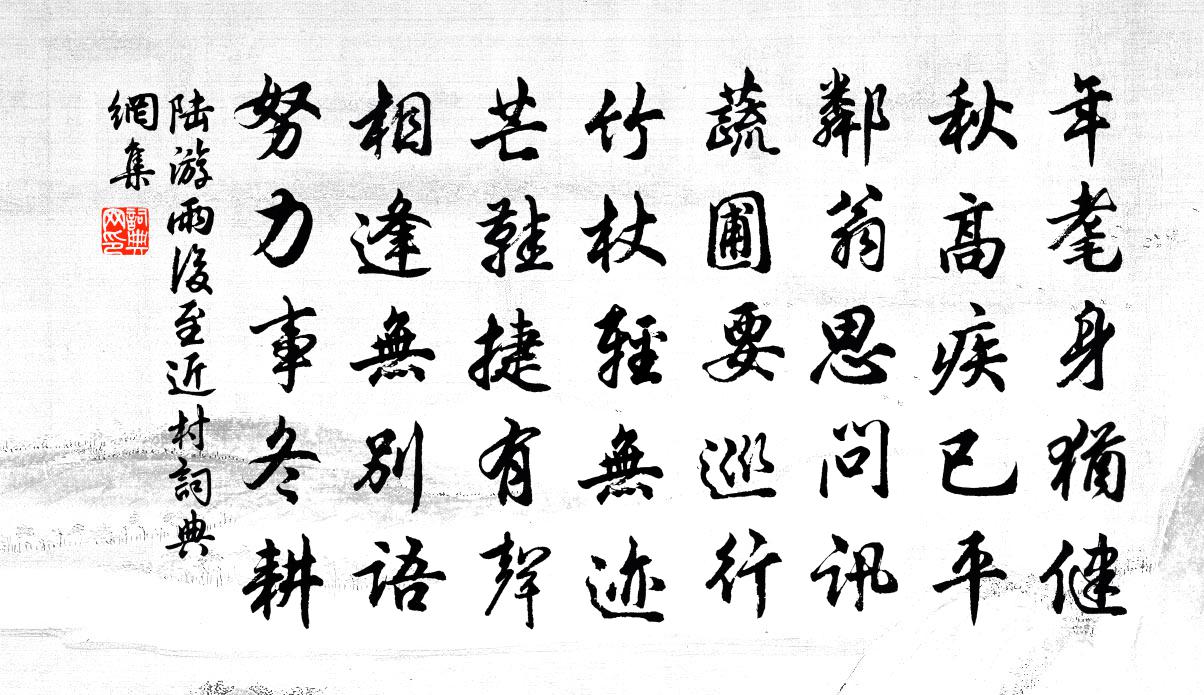 年耄身猶健
秋高疾已平
鄰翁思問訊
蔬圃要巡行
竹杖輕無迹
芒鞵捷有聲
相逢無別語
努力事冬耕
陆游雨後至近村詞典
網集
詞典
网印